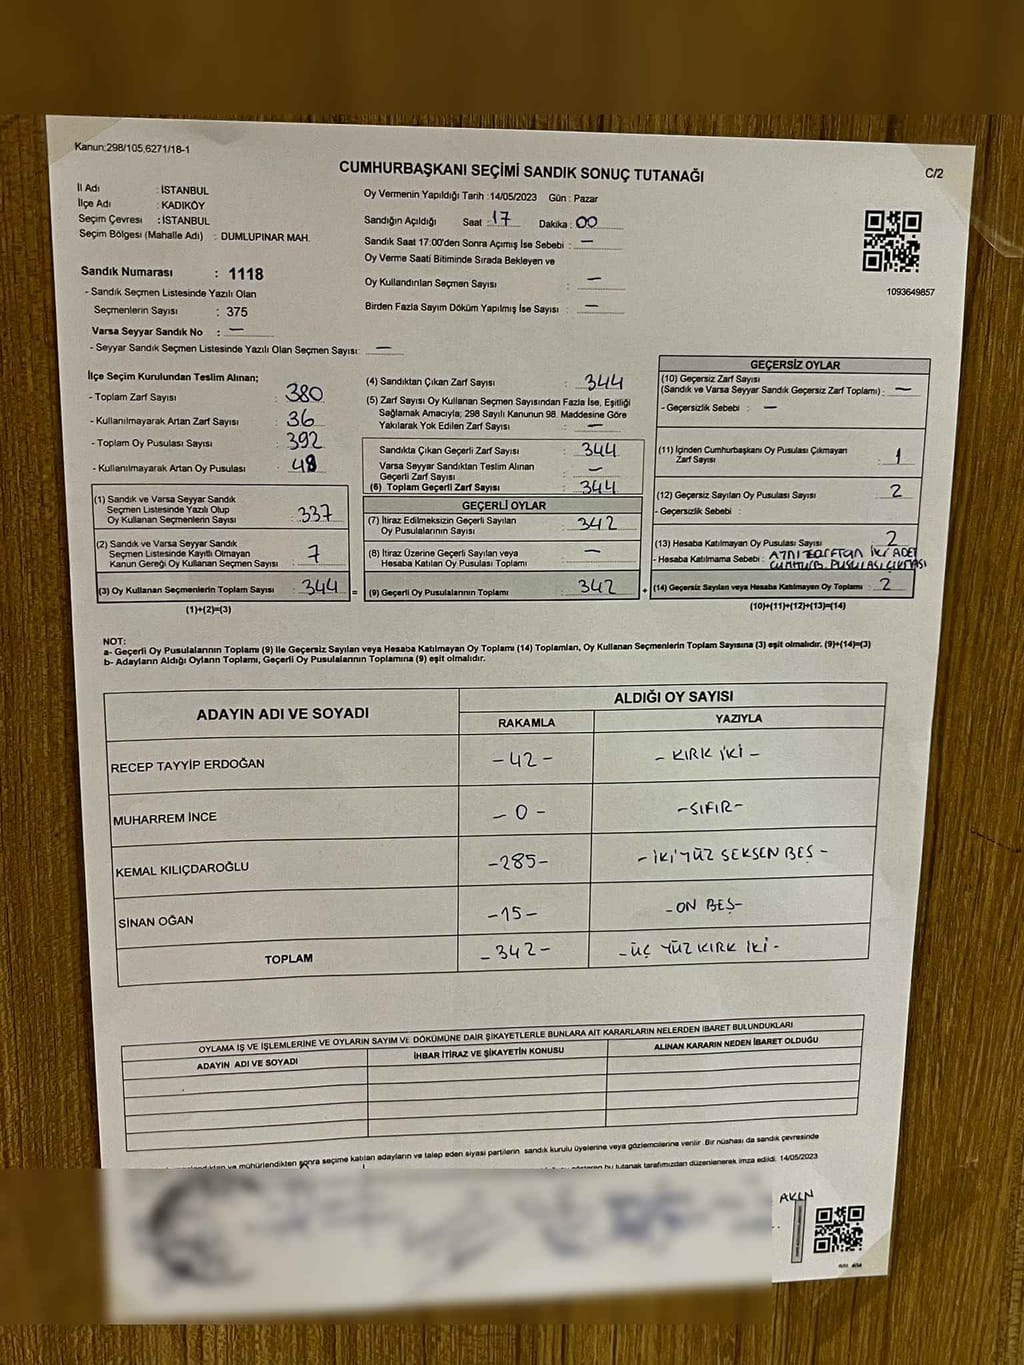 Kanun:298/105,6271/18-1
CUMHURBAŞKANI SEÇİMİ SANDIK SONUÇ TUTANAĞI
C/2
İl Adı : İSTANBUL
İlçe Adı : KADIKÖY
Seçim Çevresi : İSTANBUL
Seçim Bölgesi (Mahalle Adı) : DUMLUPINAR MAH.
Sandık Numarası : 1118
- Sandık Seçmen Listesinde Yazılı Olan
Seçmenlerin Sayısı : 375
Varsa Seyyar Sandık No : —
- Seyyar Sandık Seçmen Listesinde Yazılı Olan Seçmen Sayısı: —
Oy Vermenin Yapıldığı Tarih :14/05/2023 Gün : Pazar
Sandığın Açıldığı Saat : 17 Dakika : 00
Sandık Saat 17:00'den Sonra Açımış İse Sebebi : —
Oy Verme Saati Bitiminde Sırada Bekleyen ve
Oy Kullandırılan Seçmen Sayısı : —
Birden Fazla Sayım Döküm Yapılmış İse Sayısı : —
1093649857
İlçe Seçim Kurulundan Teslim Alınan;
- Toplam Zarf Sayısı : 380
- Kullanılmayarak Artan Zarf Sayısı : 36
- Toplam Oy Pusulası Sayısı : 392
- Kullanılmayarak Artan Oy Pusulası : 48
(1) Sandık ve Varsa Seyyar Sandık
Seçmen Listesinde Yazılı Olup
Oy Kullanan Seçmenlerin Sayısı : 337
(2) Sandık ve Varsa Seyyar Sandık
Seçmen Listesinde Kayıtlı Olmayan
Kanun Gereği Oy Kullanan Seçmen Sayısı : 7
(3) Oy Kullanan Seçmenlerin Toplam Sayısı : 344 =
(1)+(2)=(3)
(4) Sandıktan Çıkan Zarf Sayısı : 344
(5) Zarf Sayısı Oy Kullanan Seçmen Sayısından Fazla İse, Eşitliği
Sağlamak Amacıyla; 298 Sayılı Kanunun 98. Maddesine Göre
Yakılarak Yok Edilen Zarf Sayısı : —
Sandıkta Çıkan Geçerli Zarf Sayısı : 344
Varsa Seyyar Sandıktan Teslim Alınan
Geçerli Zarf Sayısı : —
(6) Toplam Geçerli Zarf Sayısı : 344
GEÇERLİ OYLAR
(7) İtiraz Edilmeksizin Geçerli Sayılan
Oy Pusulalarının Sayısı : 342
(8) İtiraz Üzerine Geçerli Sayılan veya
Hesaba Katılan Oy Pusulası Toplamı : —
(9) Geçerli Oy Pusulalarının Toplamı : 342 +
GEÇERSİZ OYLAR
(10) Geçersiz Zarf Sayısı
(Sandık ve Varsa Seyyar Sandık Geçersiz Zarf Toplamı) : —
- Geçersizlik Sebebi : —
(11) İçinden Cumhurbaşkanı Oy Pusulası Çıkmayan
Zarf Sayısı : 1
(12) Geçersiz Sayılan Oy Pusulası Sayısı : 2
- Geçersizlik Sebebi :
(13) Hesaba Katılmayan Oy Pusulası Sayısı : 2
- Hesaba Katılmama Sebebi : AYNI ZARFTAN İKİ ADET
CUMHURB. PUSULASI ÇIKMASI
(14) Geçersiz Sayılan veya Hesaba Katılmayan Oy Toplamı : 2
(10)+(11)+(12)+(13)=(14)
NOT:
a- Geçerli Oy Pusulalarının Toplamı (9) ile Geçersiz Sayılan veya Hesaba Katılmayan Oy Toplamı (14) Toplamları, Oy Kullanan Seçmenlerin Toplam Sayısına (3) eşit olmalıdır. (9)+(14)=(3)
b- Adayların Aldığı Oyların Toplamı, Geçerli Oy Pusulalarının Toplamına (9) eşit olmalıdır.
ADAYIN ADI VE SOYADI
ALDIĞI OY SAYISI
RAKAMLA
YAZIYLA
RECEP TAYYİP ERDOĞAN -42- -KIRK İKİ-
MUHARREM İNCE -0- -SIFIR-
KEMAL KILIÇDAROĞLU -285- -İKİYÜZ SEKSEN BEŞ-
SİNAN OĞAN -15- -ON BEŞ-
TOPLAM -342- -ÜÇ YÜZ KIRK İKİ-
OYLAMA İŞ VE İŞLEMLERİNE VE OYLARIN SAYIM VE DÖKÜMÜNE DAİR ŞİKAYETLERLE BUNLARA AİT KARARLARIN NELERDEN İBARET BULUNDUKLARI
ADAYIN ADI VE SOYADI
İHBAR İTİRAZ VE ŞİKAYETİN KONUSU
ALINAN KARARIN NEDEN İBARET OLDUĞU
ve mühürlendikten sonra seçime katılan adayların ve talep eden siyasi partilerin sandık kurulu üyelerine veya gözlemcilerine verilir. Bir nüshası da sandık çevresinde
bu tutanak tarafımızdan düzenlenerek imza edildi. 14/05/2023
AKLN